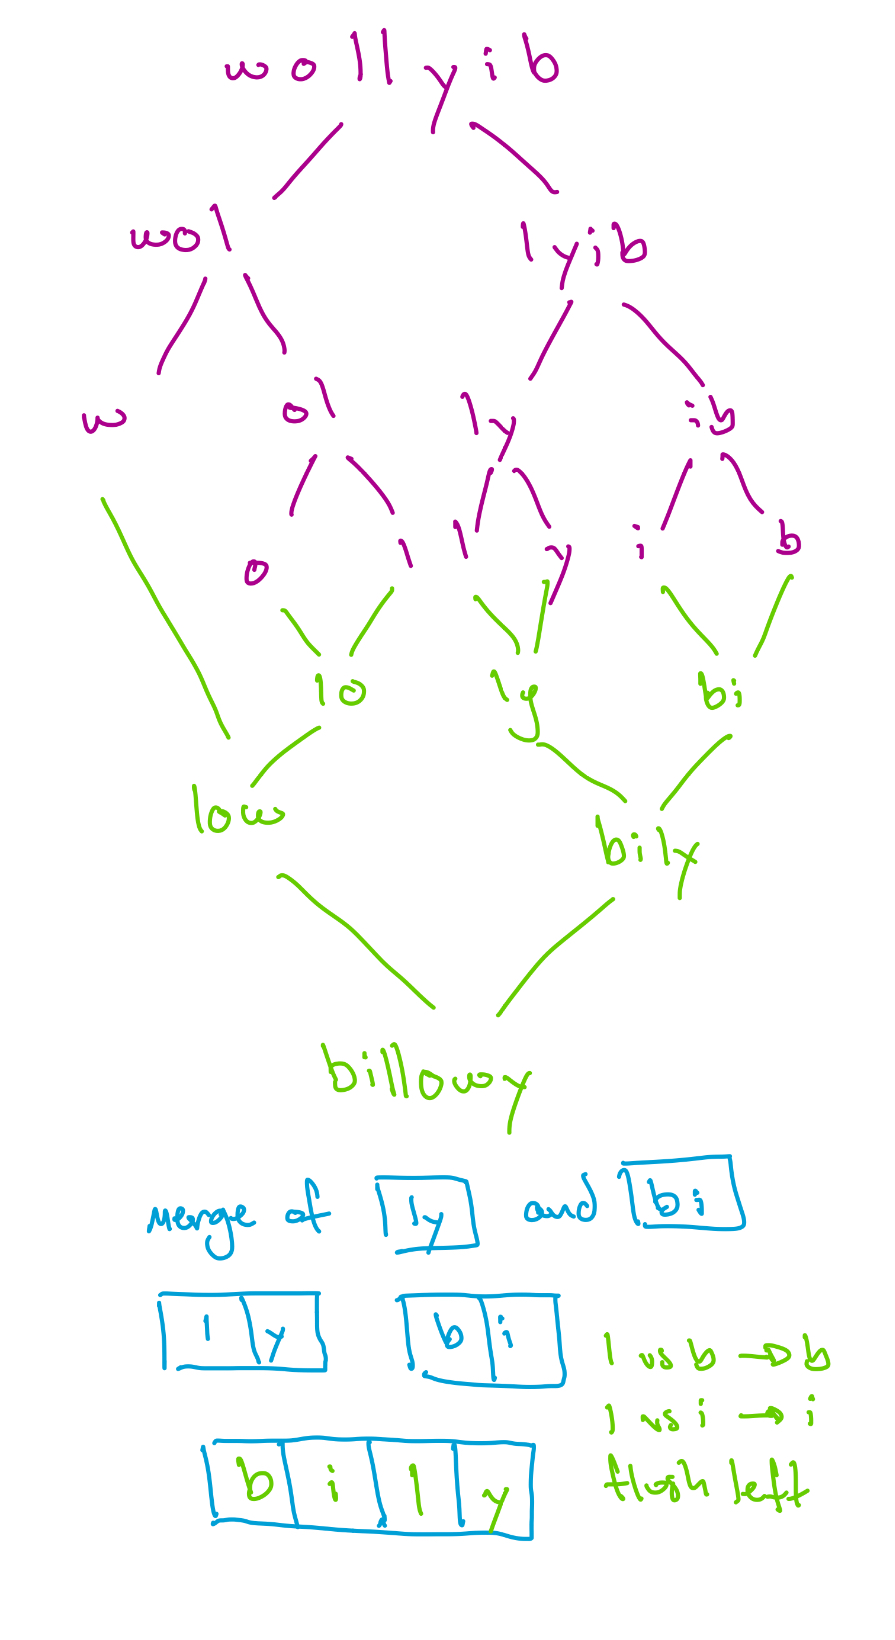 wollyib
wol lyib
w ol ly ib
o l l y i b
lo ly bi
low bily
billowy
merge of ly and bi
l y b i
l vs b → b
l vs i → i
b i l y
flush left